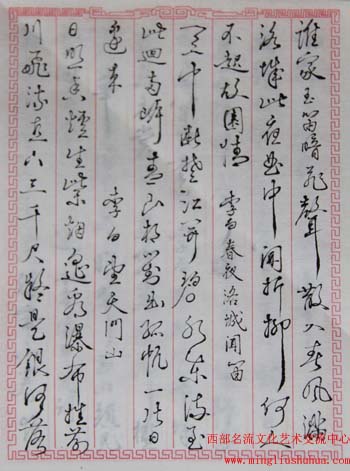 誰家玉笛暗飛聲散入春風滿
洛城此夜曲中聞折柳何人
不起故園情 李白春夜洛城聞笛
天门中断楚江开碧水东流至
此迴两岸青山相對出孤帆一片日
邊来 李白望天門山
日照香爐生紫烟遥看瀑布挂前
川飛流直下三千尺疑是銀河落
西部名流文化艺术交流中心
www.mingliushuhua.com